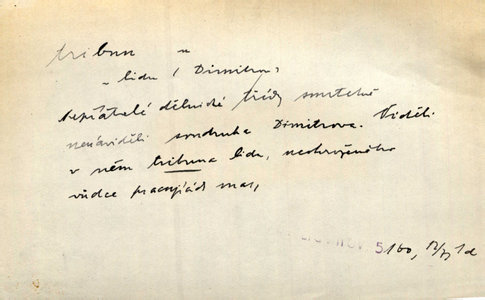 tribun u
„ lidu (Dimitrov)
Nepřátelé dělnické třídy smrtelně
nenáviděli soudruha Dimitrova. Viděli
v něm tribuna lidu, neohroženého
vůdce pracujících mas,
5160,